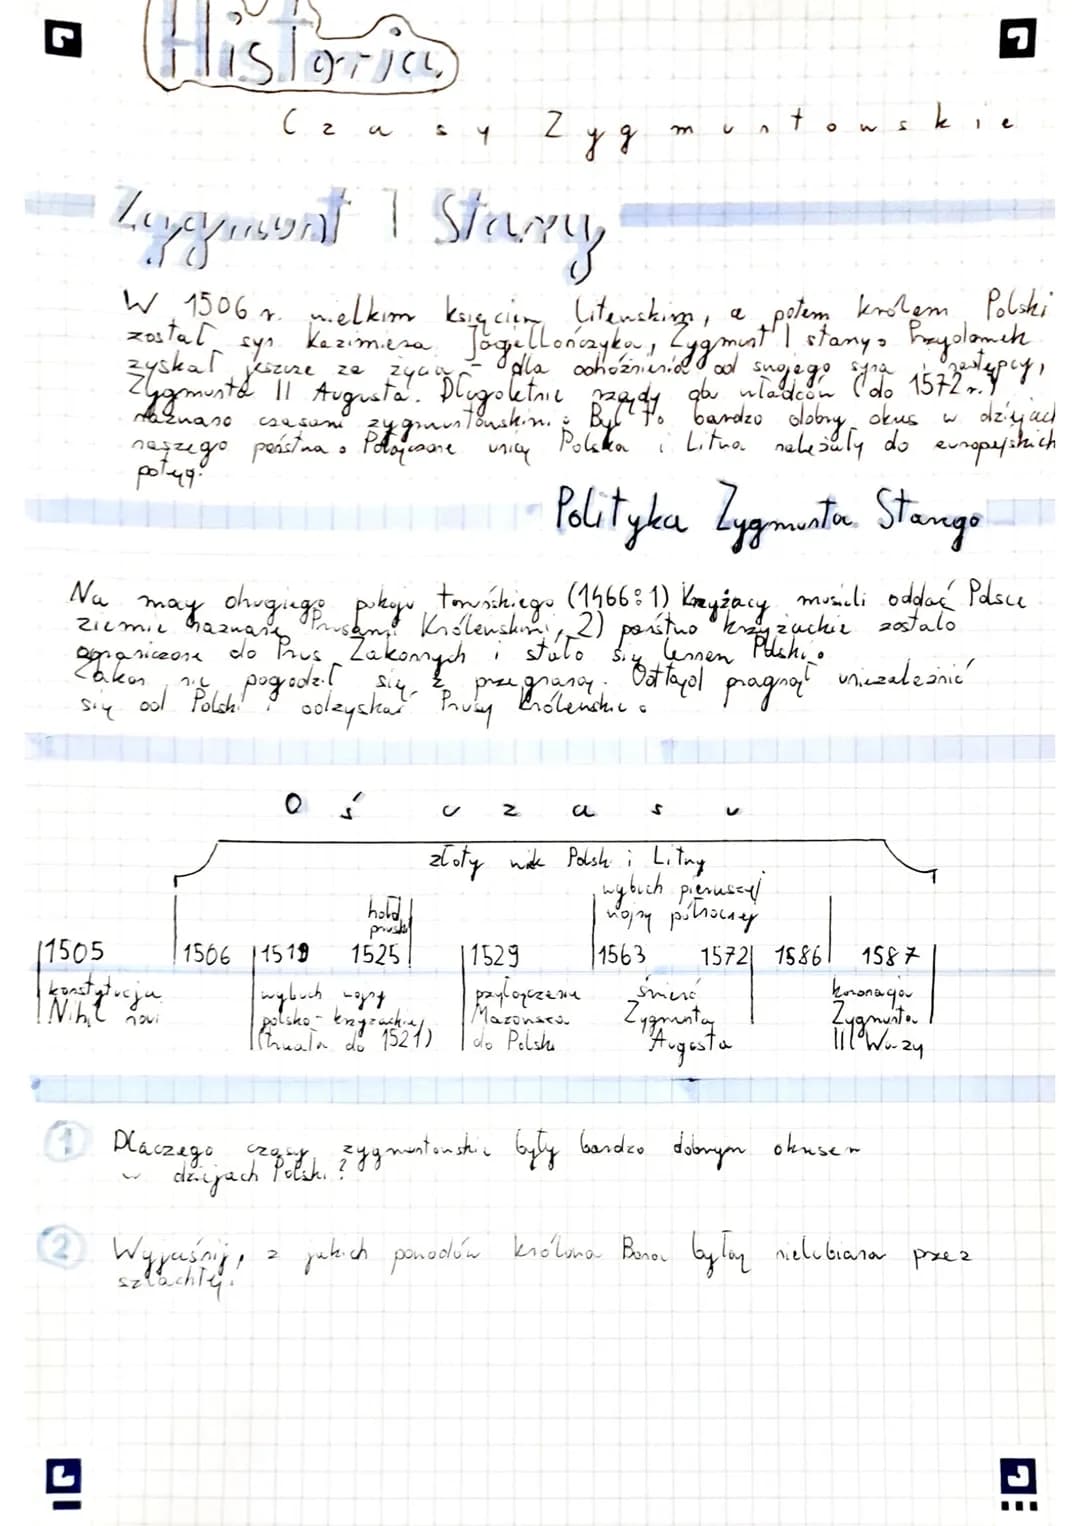 Historia
Czasy Zygmuntowskie
Zygmunt I Stary
W 1506 r. wielkim księciem litewskim, a potem królem Polski
został syn Kazimierza Jagiellończyka, Zygmunt I stary. Przydomek
zyskał jeszcze za życia - dla odróżnienia od swojego syna i następcy,
Zygmunta II Augusta. Długoletnie rządy obu władców (do 1572 r.)
nazwano czasami zygmuntowskimi. Był to bardzo dobry okres w dziejach
naszego państwa. Połączone unią Polska i Litwa należały do europejskich
potęg.
Polityka Zygmunta Starego
Na mocy drugiego pokoju toruńskiego (1466: 1) Krzyżacy musieli oddać Polsce
ziemie nazwane Prusami Królewskimi, 2) państwo krzyżackie zostało
ograniczone do Prus Zakonnych i stało się lennem Polski.
Zakon nie pogodził się z przegraną. Odtąd pragnął uniezależnić
się od Polski i odzyskać Prusy Królewskie.
Oś czasu
złoty wiek Polski i Litwy
wybuch pierwszej
wojny północnej
hołd
pruski
1505 1506 1519 1525 1529 1563 1572 1586 1587
konstytucja wybuch wojny przyłączenie śmierć koronacja
Nihil novi polsko-krzyżackiej Mazowsza Zygmunta Zygmunta
(trwała do 1521) do Polski Augusta III Wazy
1 Dlaczego czasy zygmuntowskie były bardzo dobrym okresem
w dziejach Polski?
2 Wyjaśnij, z jakich powodów królowa Bona była nielubiana przez
szlachtę.